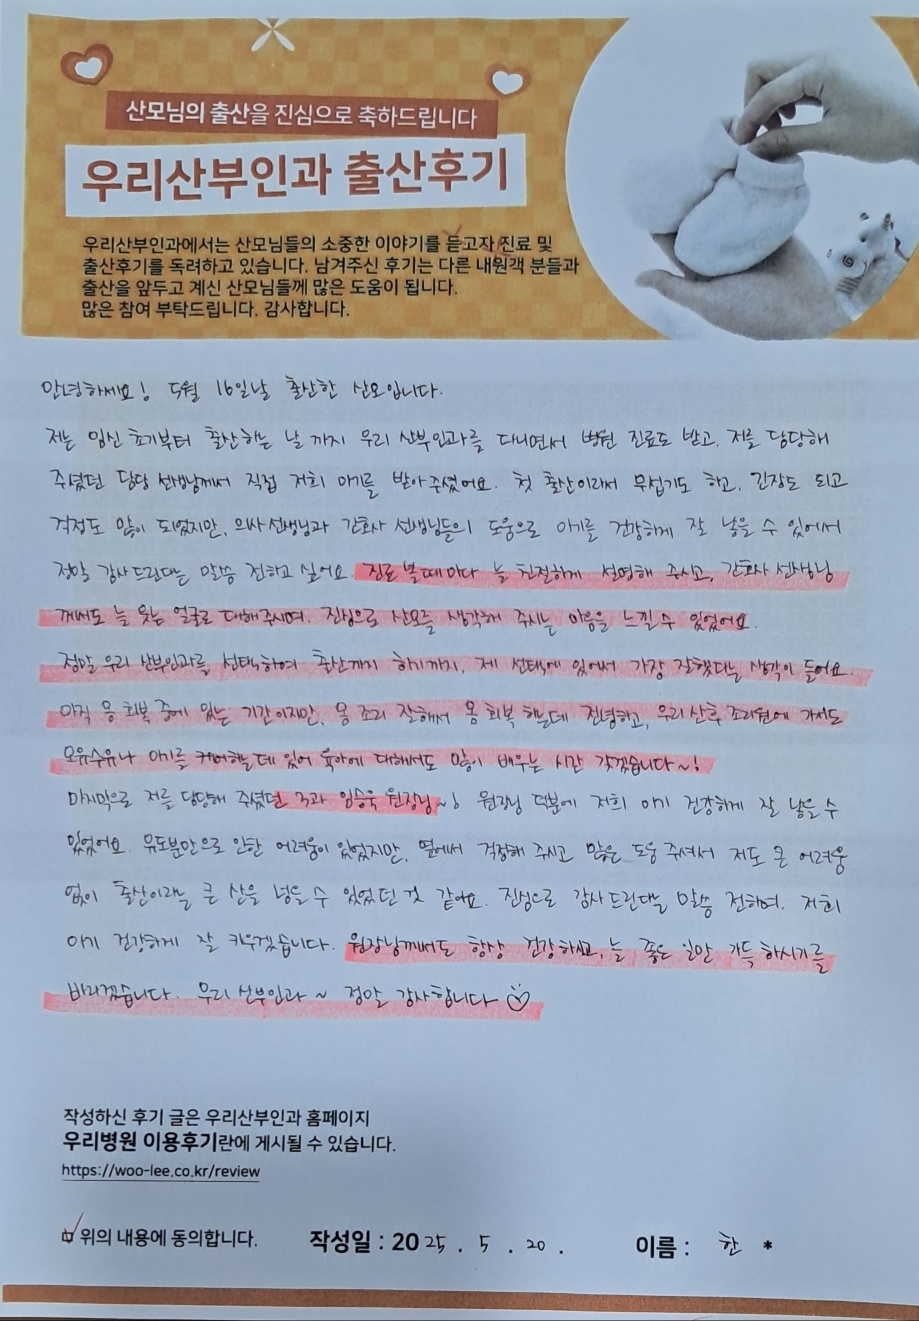 산모님의 출산을 진심으로 축하드립니다
우리산부인과 출산후기
우리산부인과에서는 산모님들의 소중한 이야기를 듣고자 진료 및
출산후기를 독려하고 있습니다. 남겨주신 후기는 다른 내원객 분들과
출산을 앞두고 계신 산모님들께 많은 도움이 됩니다.
많은 참여 부탁드립니다. 감사합니다.
안녕하세요! 5월 16일날 출산한 산모입니다.
저는 임신 초기부터 출산하는 날 까지 우리 산부인과를 다니면서 병원 진료도 받고, 저를 담당해
주셨던 담당 선생님께서 직접 저희 아기를 받아 주셨어요. 첫 출산이라서 무섭기도 하고, 긴장도 되고
걱정도 많이 되었지만, 의사선생님과 간호사 선생님들의 도움으로 아기를 건강하게 잘 낳을 수 있어서
정말 감사드린다는 말씀 전하고 싶어요. 진료 볼때마다 늘 친절하게 설명해 주시고, 간호사 선생님
께서도 늘 웃는 얼굴로 대해주시며, 진심으로 산모를 생각해 주시는 마음을 느낄 수 있었어요.
정말 우리 산부인과를 선택하여 출산까지 하기까지, 제 선택에 있어서 가장 잘했다는 생각이 들어요.
아직 몸 회복 중에 있는 기간이지만, 몸 조리 잘해서 몸 회복 하는데 전념하고, 우리 산후 조리원에 가서도
모유수유나 아기를 케어하는데 있어 육아에 대해서도 많이 배우는 시간 갖겠습니다~!
마지막으로 저를 담당해 주셨던 3과 임승욱 원장님~! 원장님 덕분에 저희 아기 건강하게 잘 낳을 수
있었어요. 유도분만으로 인한 어려움이 있었지만, 옆에서 걱정해 주시고 많은 도움 주셔서 저도 큰 어려움
없이 출산이라는 큰 산을 넘을 수 있었던 것 같아요. 진심으로 감사드린다는 말씀 전하며, 저희
아기 건강하게 잘 키우겠습니다. 원장님께서도 항상 건강하시고, 늘 좋은 일만 가득 하시기를
바라겠습니다. 우리 산부인과 ~ 정말 감사합니다
작성하신 후기 글은 우리산부인과 홈페이지
우리병원 이용후기란에 게시될 수 있습니다.
https://woo-lee.co.kr/review
위의 내용에 동의합니다. 작성일 : 2025 . 5 . 20 . 이름 : 한 *